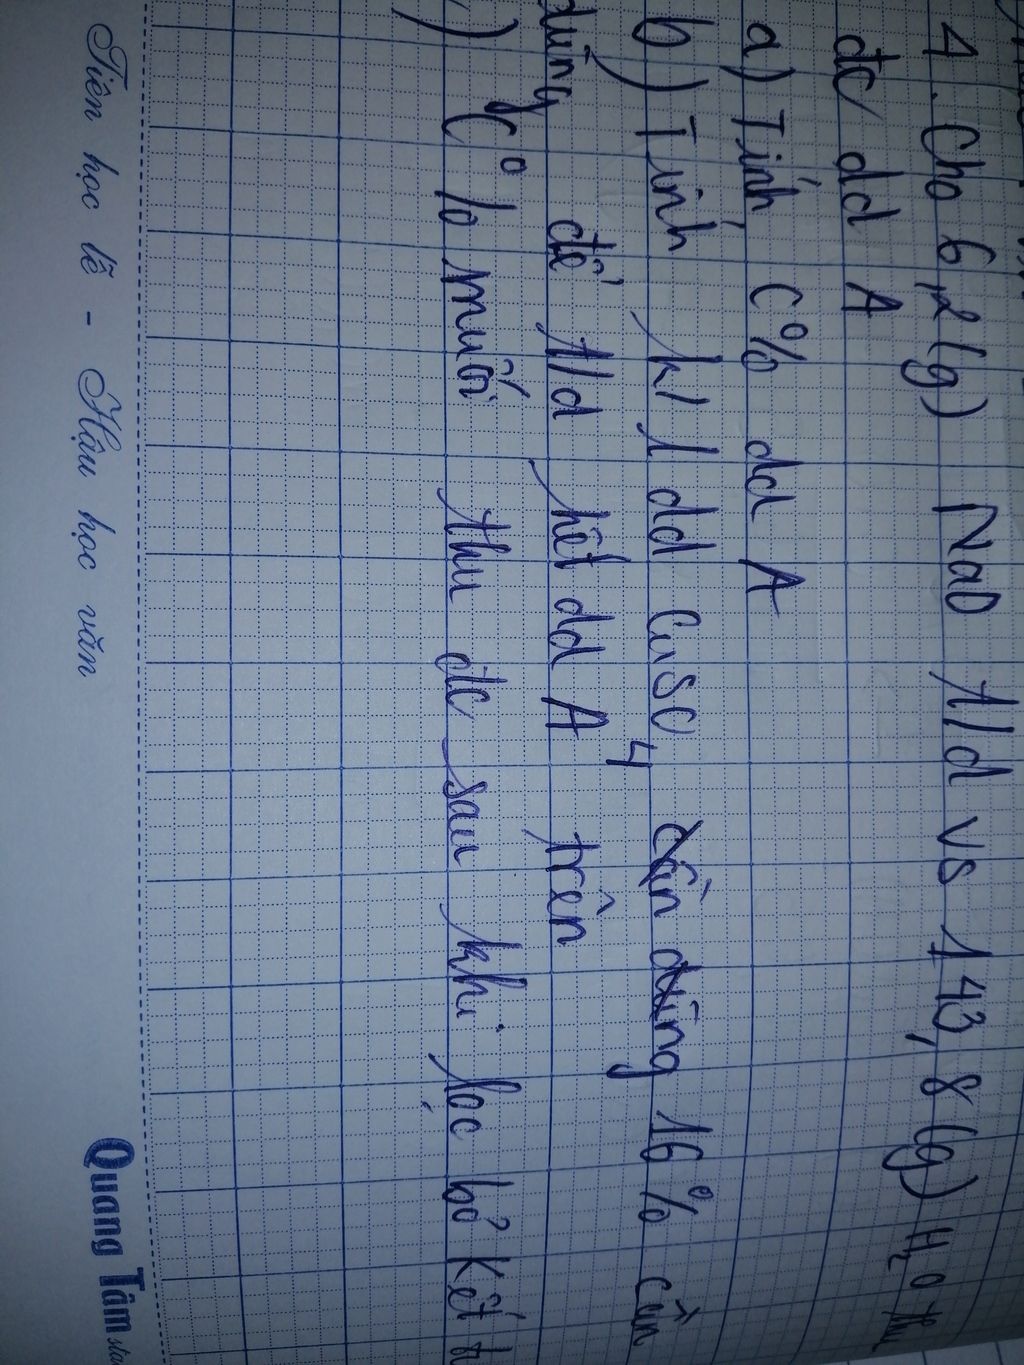 4. Cho 6,2(g) NaO t/d vs 143,8 (g) H2O thu
đc dd A
a) Tính C% dd A
b) Tính kl dd CuSO4 16% cần
dùng để t/d hết dd A trên
) C% muối thu đc sau khi lọc bỏ kết
Tiên học lễ - Hậu học văn
Quang Tâm